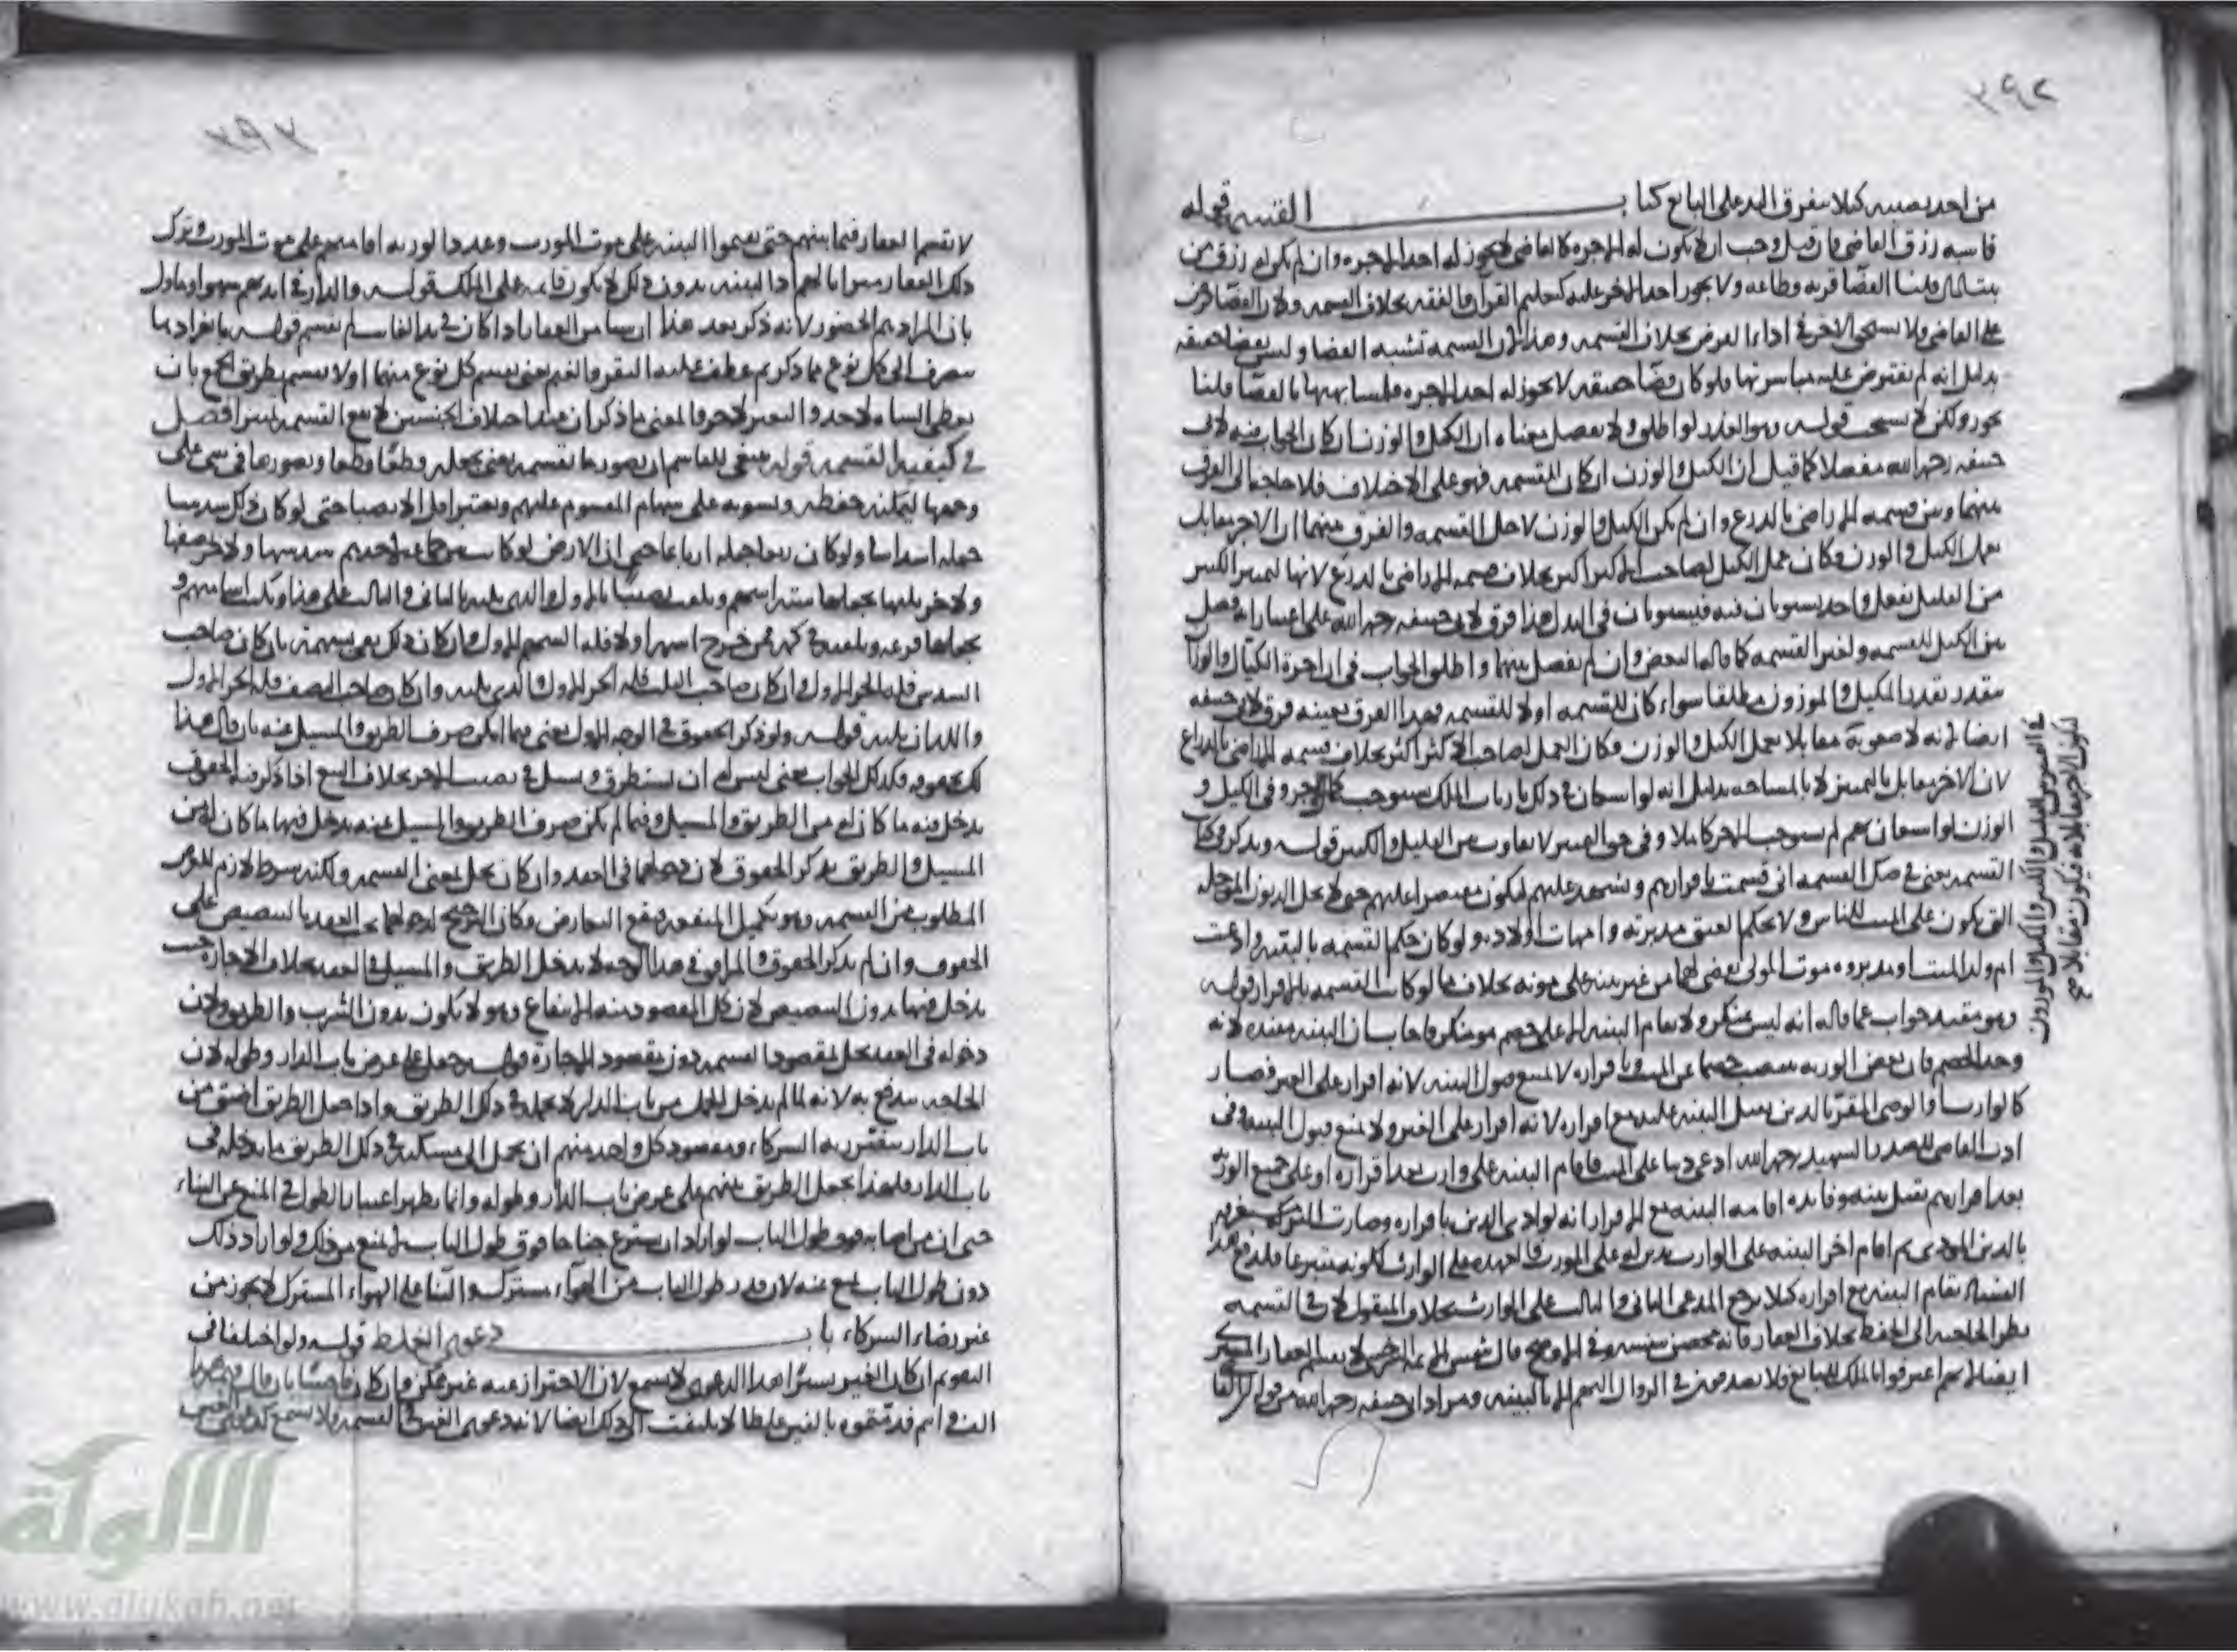 ٣٩٢
من احد نصيبيه كيلا يتفرق اليد على البائع كتاب القسمة قوله
قاسمه رزق القاضي فان قيل وجب ان لا يكون له الاجرة كالقاضي لا يجوز له اخذ الاجرة وان لم يكن له رزق من
بيت المال قلنا القضا قربة وطاعة ولا يجوز اخذ الاجر عليه كتعليم القران والفقه بخلاف القسمة ولان القضا فرض
على القاضي ولا يستحق الاجر في اداء الفرض بخلاف القسمة وهذا لان القسمة تشبه القضا وليس بقضا حقيقة
بدليل انه لم يفترض عليه مباشرتها فلو كان قضا حقيقة لا يجوز له اخذ الاجرة فلشبهها بالقضا قلنا
يجوز ولكن لا يستحب قوله وهو العذر لو اطلق ولا يفصل معناه ان الكيل والوزن ان كان الجواب فيه لابي
حنيفة رحمه الله مفصلا كما قيل ان الكيل والوزن ان كان للقسمة فهو على الاختلاف فلا حاجة الى الفرق
بينهما وبين قسمة الاراضي بالذرع وان لم يكن الكيل والوزن لاجل القسمة والفرق بينهما ان الاجر مقابل
بعمل الكيل والوزن وكان عمل الكيل لصاحب الكثير اكثر بخلاف قسمة الاراضي بالذرع لانها لتمييز الكثير
من القليل بفعل واحد يستويان فيه فيستويان في البدل هذا فرق لابي حنيفة رحمه الله على اعتبار انه فصل
بين الكيل للقسمة ولغير القسمة كما قاله البعض وان لم يفصل بينهما واطلق الجواب في ان اجرة الكيال والوزان
مقدر بقدر المكيل والموزون مطلقا سواء كان للقسمة او لا للقسمة فهذا الفرق بعينه فرق لابي حنيفة
ايضا لانه لا صعوبة مقابلا بعمل الكيل والوزن فكان العمل لصاحب الاكثر اكثر بخلاف قسمة الاراضي بالذراع
لان الاجر مقابل بالتمييز لا بالمساحة بدليل انه لو استعان في ذلك بارباب الملك يستوجب كمال الاجر وفي الكيل و
الوزن لو استعان بهم لم يستوجب الاجر كاملا وفي حق التمييز لا تفاوت بين القليل والكثير قوله ويذكر في كتاب
القسمة يعني في صك القسمة اني قسمت باقرارهم ويشهد عليهم ليكون مقتصرا عليهم حتى لا يحل الديون المؤجلة
التي تكون على الميت للناس ولا يحكم العتق مدبرته وامهات اولاده ولو كان حكم القسمة بالبينة وادعت
ام ولد الميت او مدبروه موت المولى يقضي لهما من غير بينة على موته بخلاف ما لو كانت القسمة بالاقرار قوله
وهو مقيد جواب عما قاله انه ليس بمنكر ولا تقام البينة الا على خصم هو منكر فاجاب بان البينة مفيدة لانه
وجد الخصم فان بعض الورثة ينتصب خصما عن الميت وباقراره لا يمنع قبول البينة لانه اقرار على الغير فصار
كالوارث والوصي المقر بالدين يقبل البينة عليه مع اقراره لانه اقرار على الغير ولا يمنع قبول البينة وفي
ادب القاضي للصدر الشهيد رحمه الله ادعى دينا على الميت فاقام البينة على وارث بعد اقراره او على جميع الورثة
بعد اقرارهم تقبل بينته وفائدة اقامة البينة مع الاقرار انه لو ادى الدين باقراره وصارت التركة
بالدين المؤدى ثم اقام اخر البينة على الوارث بدين له على المورث
البينة تقام البينة مع اقراره كيلا يرجع المدعي الثاني والثالث على الوارث بخلاف المنقول لان في القسمة
نظرا لحاجته الى الحفظ بخلاف العقار فانه محصن بنفسه وفي الاوضح قال شمس الائمة السرخسي لا يقسم العقار المشترى
ايضا لانهم اعترفوا بالملك للبايع فلا يصدقون في الزوال اليهم الا بالبينة ومراد ابي حنيفة رحمه الله من قوله ان القاضي
٣٩٣
لا يقسم العقار فيما بينهم حتى يقيموا البينة على موت المورث وعدد الورثة اقامتهم على موت المورث وترك
ذلك العقار ميراثا لهم اذ البينة بدون ذلك لا تكون قائمة على الملك قوله والدار في ايديهم سهو او ماول
بان المراد بهم الحضور لانه ذكر بعد هذا ان شيئا من العقار اذا كان في يد الغائب لم يقسم قوله بانفرادها
يصرف الى كل نوع مما ذكر ثم عطف عليه البقر والغنم يعني يقسم كل نوع منهما اولا يقسم بطريق الجمع بان
يعطي الشاة لاحد والبعير لاخر والمعنى ما ذكر ان عند اختلاف الجنسين لا تقع القسمة تمييزا فصل
في كيفية القسمة قوله ينبغي للقاسم ان يصور ما يقسمه يعني يجعله قطعا قطعا ويصورها في شيء على
وجهها ليمكنه حفظه ويسويه على سهام المقسوم عليهم ويعتبر اقل الانصبا حتى لو كان ذلك سدسا
جعله اسداسا ولو كان ربعا جعله ارباعا حتى ان الارض لو كانت بين جماعة لاحدهم سدسها ولاخر نصفها
ولاخر ثلثها يجعلها ستة اسهم ويلقب نصيبا بالاول والذي يليه بالثاني والثالث على هذا ويكتب اساميهم و
يجعلها قرعة ويلقيه في كمه فمن خرج اسمه اولا فله السهم الاول وان كان ذلك يفي بسهمه بان كان صاحب
السدس فله الجزء الاول وان كان صاحب الثلث فله الجزء الاول والذي يليه وان كان صاحب النصف فله الجزء الاول
واللذان يليه قوله ولو ذكر الحقوق في الوجه الاول يعني فيما امكن صرف الطريق والمسيل عنه بان قال هذا
لك بحقوقه فكذلك الجواب يعني ليس له ان يستطرق ويسيل في نصيب الاخر بخلاف البيع اذا ذكر فيه الحقوق
يدخل فيه ما كان له من الطريق والمسيل وفيما لم يكن صرف الطريق والمسيل عنه يدخل فيها ما كان له من
المسيل والطريق بذكر الحقوق لان دخولهما في العقد وان كان يخل بمعنى القسمة ولكنه شرط لازم
المطلوب من القسمة وهو تكميل المنفعة فيقع التعارض وكان الترجيح لدخولهما تحت العقد بالتنصيص على
الحقوق وان لم يذكر الحقوق والمرافق في هذا الوجه لا يدخل الطريق والمسيل في العقد بخلاف الاجارة حيث
يدخل فيها بدون التنصيص لان كل المقصود منه الانتفاع وهو لا يكون بدون الشرب والطريق ولان
دخوله في العقد يخل بمقصود القسمة دون مقصود الاجارة قوله جعل على عرض باب الدار وطوله لان
الحاجة تندفع به لانه ما لم يدخل الحمل من باب الدار لا يحمله في ذلك الطريق واذا جعل الطريق اضيق من
باب الدار يتضرر به الشركاء ومقصود كل واحد منهم ان يحمل الى مسكنه في ذلك الطريق ما يدخله في
باب الدار فلهذا يجعل الطريق بينهم على عرض باب الدار وطوله وانما يظهر اعتبار الطول في المنع عن البناء
حتى ان من اصابه فوق طول الباب لو اراد ان يشرع جناحا فوق طول الباب لا يمنع من ذلك ولو اراد ذلك
دون طول الباب يمنع عنه لان قدر طول الباب من الهواء مشترك والبنا على الهواء المشترك لا يجوز من
غير رضاء الشركاء باب دعوى الغلط قوله ولو اختلفا في
التقويم ان كان الغبن يسيرا هذا الدعوى لا يسمع لان الاحتراز عنه غير ممكن وان كان فاحشا بان قال
الف ثم قد قومه بالفين غلطا لا يلتفت الى ذلك ايضا لانه دعوى الغبن في القسمة ولا يسمع كدعوى الغبن
الالوكة
www.alukah.net